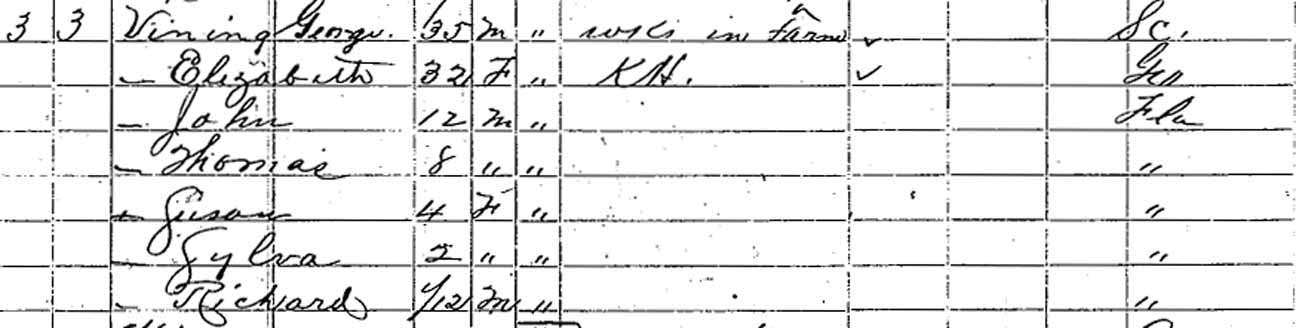 3 3 Vining George. 35 M " wks in Farm ✓ SC.
— Elizabeth 32 F " KH. ✓ Geo
— John 12 M " Fla
— Thomas 8 " " "
— Susan 4 F " "
— Sylva 2 " " "
— Richard 1/12 M " "